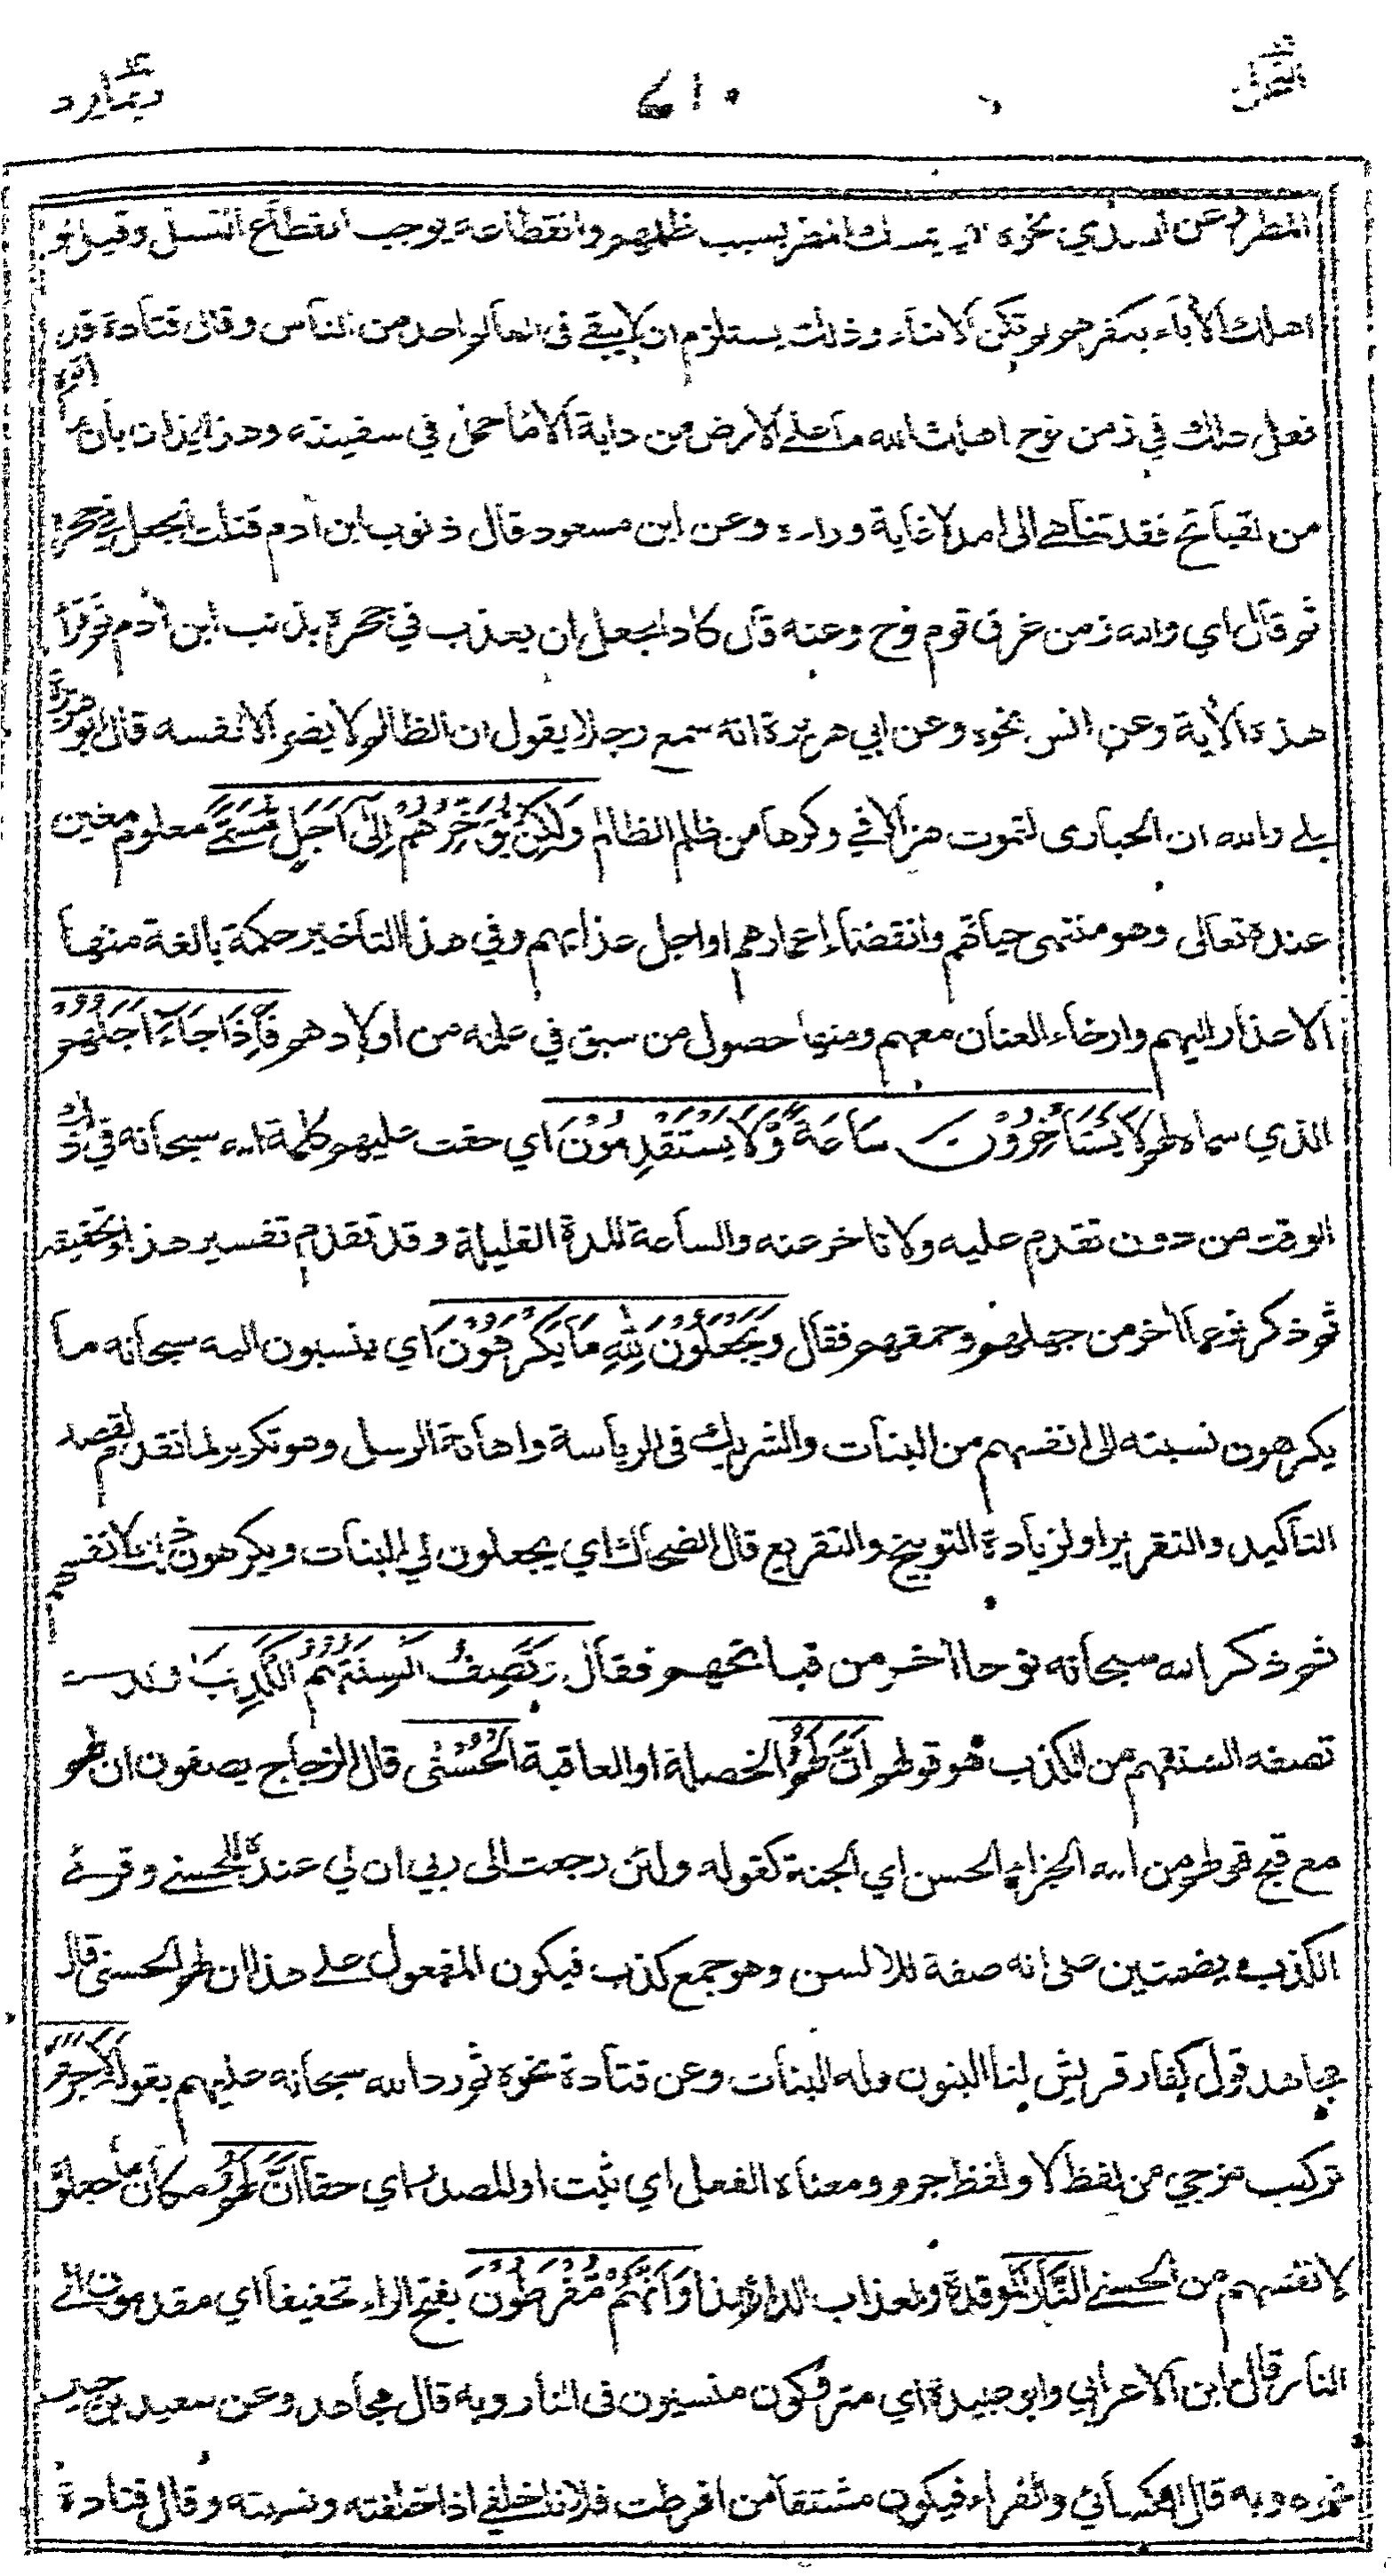 النحل ٦١٠ ربما يود
المطر عن السدي نحوه اي يمسك المطر بسبب ظلمهم وانقطاعه يوجب انقطاع النسل وقيل لو
اهلك الأباء بكفرهم لم تكن الابناء وذلك يستلزم ان لا يبقى فى العالم احد من الناس وقال قتادة قد
فعل ذلك في زمن نوح اهلك الله ما على الارض من دابة الا ما حمل في سفينته وهذا ايذان بأن ما اتوه
من القبائح فقد تناهى الى امد لا غاية وراءه وعن ابن مسعود قال ذنوب ابن أدم قتلت الجعل في جحره
ثم قال اي والله زمن غرق قوم نوح وعنه قال كاد الجعل ان يعذب في جحره بذنب ابن أدم ثم قرأ
هذه الأية وعن انس نحوه وعن ابي هريرة انه سمع رجلا يقول ان الظالم لا يضر الا نفسه قال ابو هريرة
بلى والله ان الحبارى لتموت هزلا في وكرها من ظلم الظالم وَلٰكِنْ يُؤَخِّرُهُمْ اِلٰى اَجَلٍ مُّسَمًّى معلوم معين
عنده تعالى وهو منتهى حياتهم وانقضاء اعمارهم او اجل عذابهم وفي هذا التأخير حكمة بالغة منها
الاعذار اليهم وارخاء العنان معهم ومنها حصول من سبق في علمه من اولادهم فَاِذَا جَاءَ اَجَلُهُمْ
الذي سماه لهم لَا يَسْتَأْخِرُوْنَ سَاعَةً وَّلَا يَسْتَقْدِمُوْنَ اي حقت عليهم كلمة الله سبحانه في ذلك
الوقت من دون تقدم عليه ولا تاخر عنه والساعة المدة القليلة وقد تقدم تفسير هذا وتحقيقه
ثم ذكر نوعا أخر من جهلهم وحمقهم فقال وَيَجْعَلُوْنَ لِلّٰهِ مَا يَكْرَهُوْنَ اي ينسبون اليه سبحانه ما
يكرهون نسبته الى انفسهم من البنات والشريك فى الرياسة واهانة الرسل وهو تكرير لما تقدم لقصد
التأكيد والتقرير او لزيادة التوبيخ والتقريع قال الضحاك اي يجعلون لي البنات ويكرهون ذلك لانفسهم
ثم ذكر الله سبحانه نوعا أخر من قبائحهم فقال وَتَصِفُ اَلْسِنَتُهُمُ الْكَذِبَ
تصفه السنتهم من الكذب هو قولهم اَنَّ لَهُمُ الخصلة او العاقبة الْحُسْنٰى قال الزجاج يصفون ان لهم
مع قبح قولهم من الله الجزاء الحسن اي الجنة كقوله ولئن رجعت الى ربي ان لي عنده للحسنى وقرئ
الكذب بضمتين على انه صفة للالسن وهو جمع كذب فيكون المفعول على هذا ان لهم الحسنى قال
مجاهد قول كفار قريش لنا البنون وله البنات وعن قتادة نحوه ثم رد الله سبحانه عليهم بقوله لَا جَرَمَ
تركيب مزجي من لفظ لا ولفظ جرم ومعناه الفعل اي ثبت او المصدر اي حقا اَنَّ لَهُمُ مكان ما جعلوه
لانفسهم من الحسنى النَّارَ الموقدة والعذاب الدائم وَاَنَّهُمْ مُّفْرَطُوْنَ بفتح الراء تخفيفا اي مقدمون الى
النار قال ابن الاعرابي وابو عبيدة اي متروكون منسيون فى النار وبه قال مجاهد وعن سعيد بن جبير
نحوه وبه قال الكسائي والفراء فيكون مشتقا من افرطت فلانا خلفي اذا خلفته ونسيته وقال قتادة